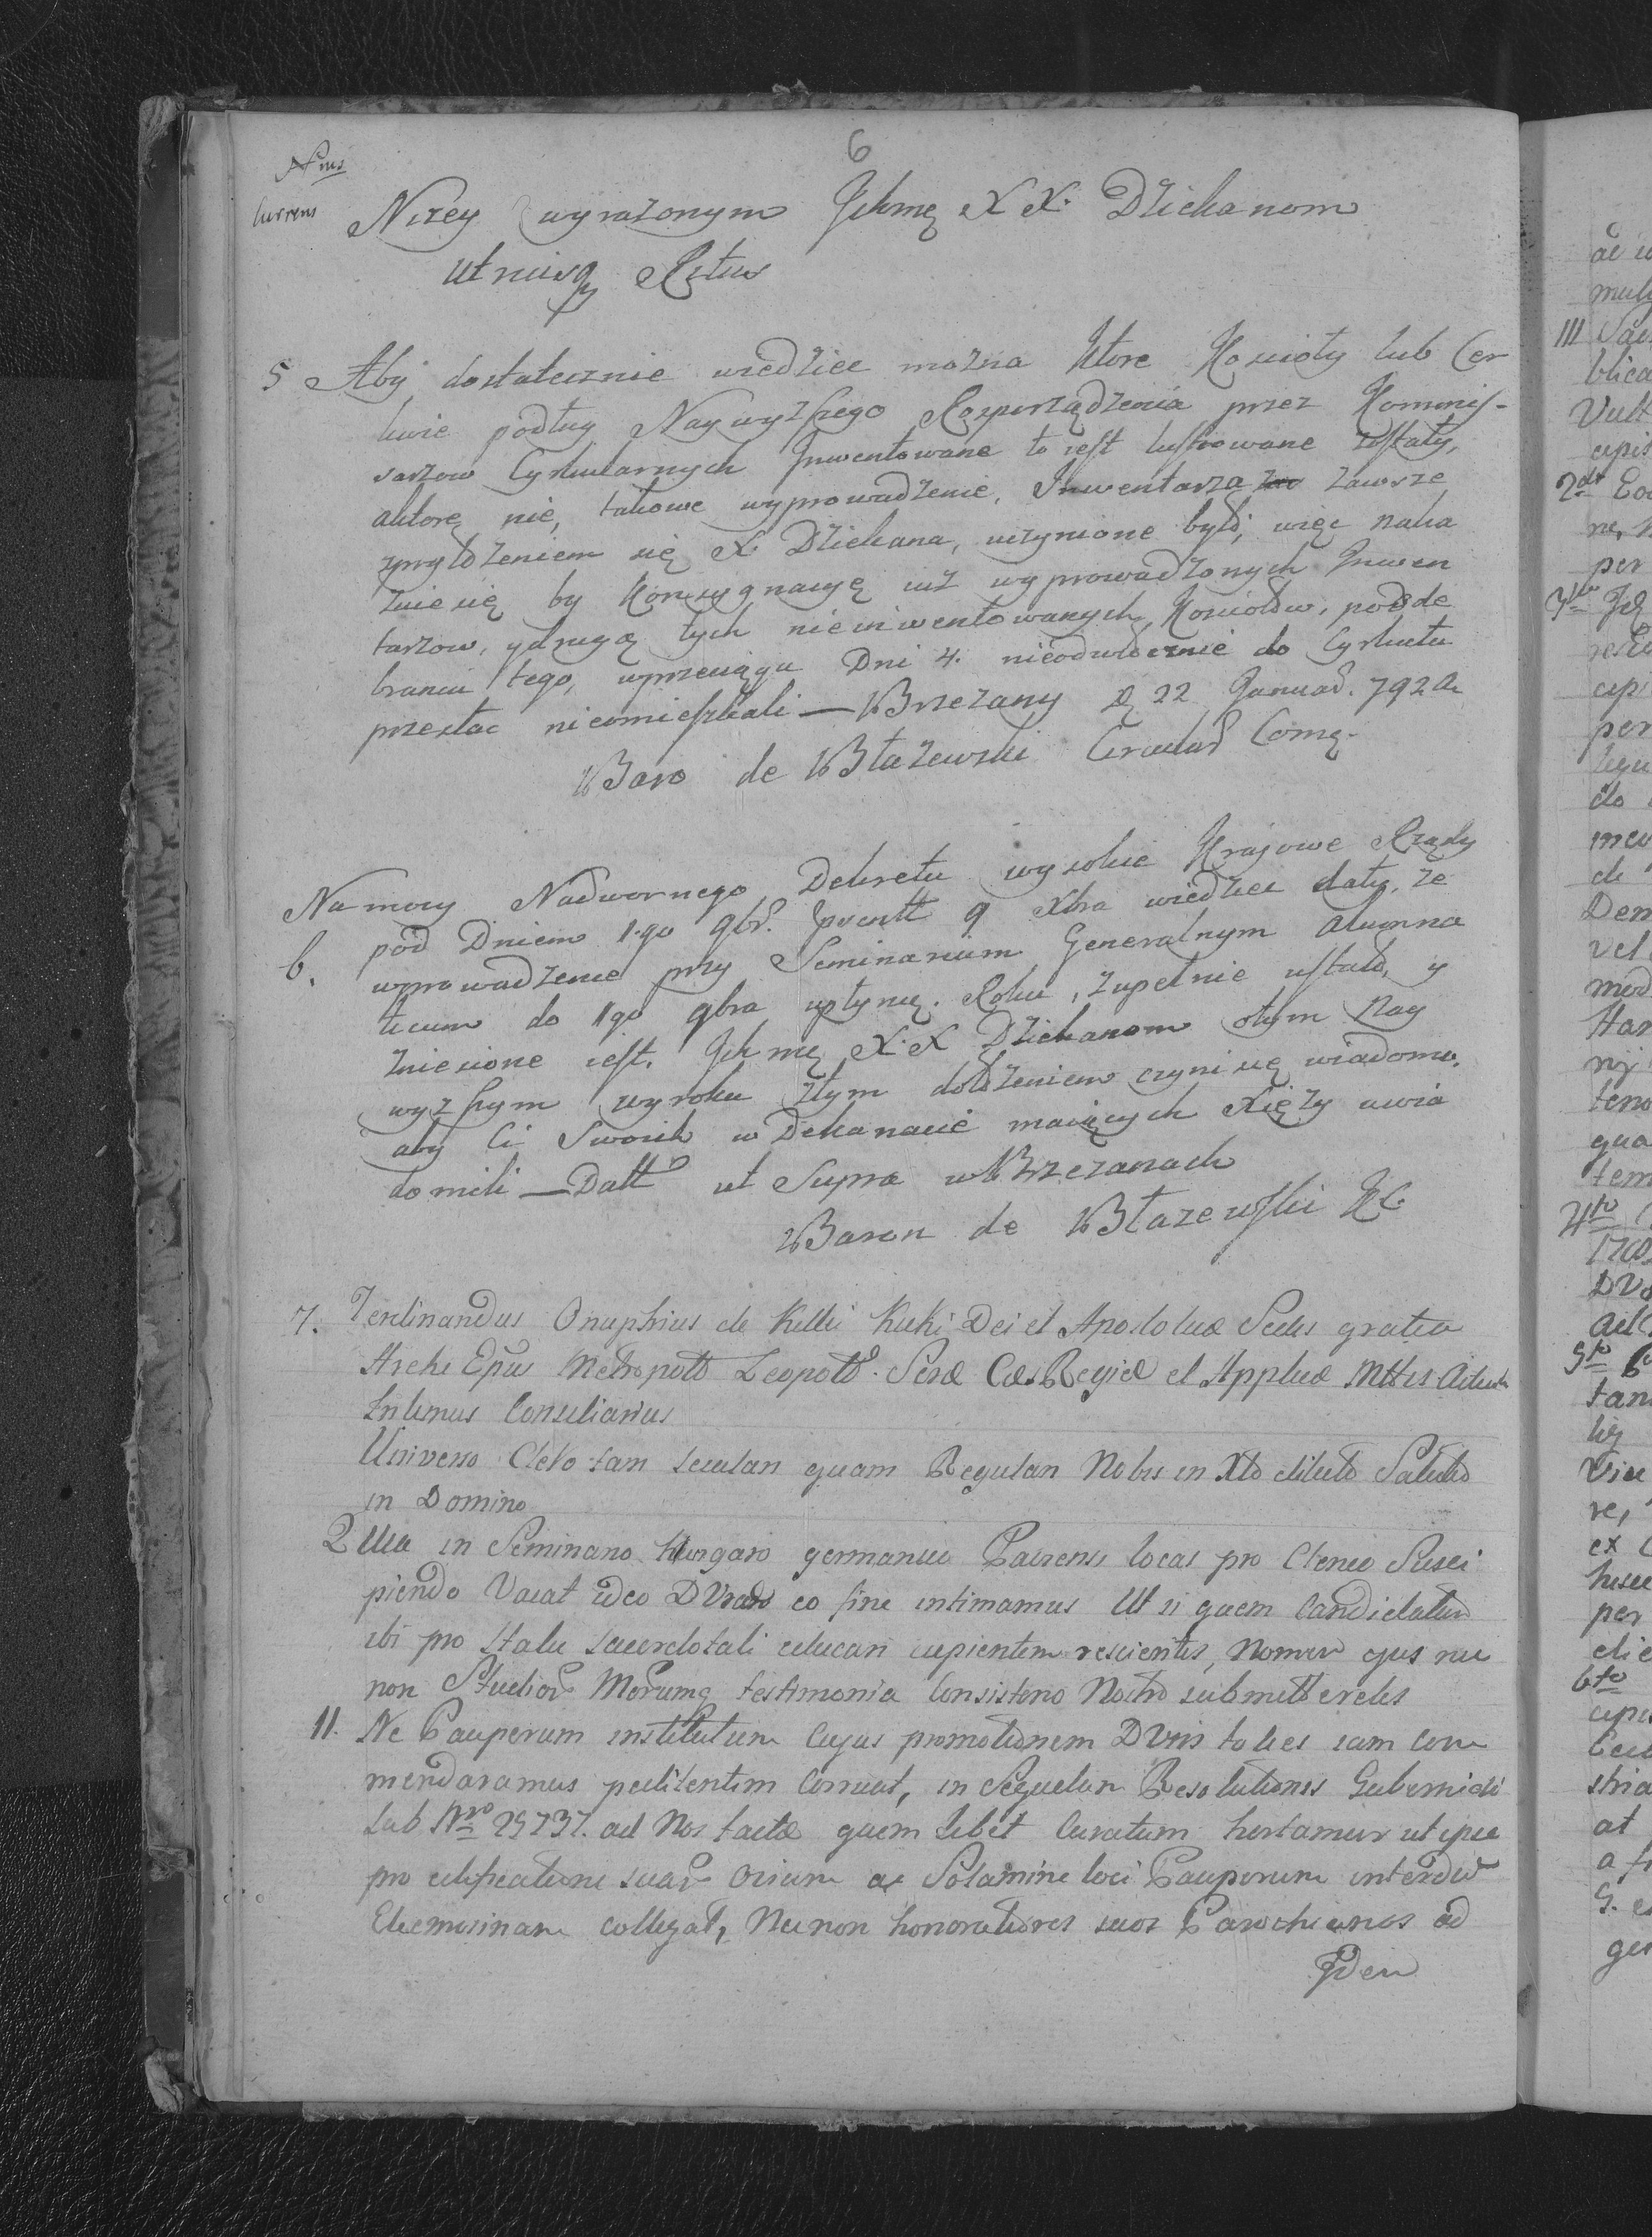 6
Nrus
Currens
Niżey wyrażonym Ichmę X X. Dziekanom
Utriusq Ritus
5 Aby dostatecznie wiedziec można ktore Koscioły lub Cer
kwie podług Naywyzszego Rozporządzenia przez Kommis-
sarzow Cyrkularnych Inwentowane to iest lustrowane zostały,
aktorę nie, takowe wyprowadzenie, Inwentarza zawsze
zwyłdzeniem się X Dziekana, uczynione było; więc naka
zuie się by konsygnacyę iuż wyprowadzonych Inwen
tarzow, y drugą tych nieinwentowanych Kosciołow, po ode
braniu tego, wprzeciągu Dni 4. nieodwłocznie do Cyrkułu
przesłac nieomieszkali — Brzezany D 22 Januar. 792 a
Baro de Błażewski Circular Comę.
Na mocy Nadwornego Dekretu wysokie Kraiowe Rządy
6. pod Dniem 1go 9br. 9 Xbra wiedziec dały, że
wprowadzenie przy Seminarium Generalnym Alumna
ticum do 1go 9bra upłynię. Roku, zupełnie ustało, y
zniesione iest. Ichmę X. X Dziekanom otym Nay
wyzszym wyroku ztym dołożeniem czyni się wiadomo,
aby Ci Swoich w Dekanacie maiących Xięży uwia
domili — Datt ut Supra w Brzezanach
Baron de Błazewski KC
7. Ferdinandus Onuphrius de Kiki Kicki Dei et Apostolicæ Sedis gratia
Archi Epus Metropolt Leopolt. Seræ Cæs Regiæ et Applicæ Mttis Actualis
Intimus Consiliarius
Universo Clero tam seculari quam Regulari Nobis in Xto dilecto Salutem
in Domino
Quia in Seminario Hungaro germanico locus pro Clerico Susci
piendo Vacat ideo DVras eo fine intimamus Ut si quem Candidatum
ibi pro statu sacerdotali educari cupientem rescientis, Nomen ejus nec
non Studior Morumq testimonia Consistorio Nostro submitteretis
11. Ne Pauperum institutum Cujus promotionem DVris toties iam com
mendaramus peditentim Corruat, in Sequelam Resolutionis Gubernialis
sub Nro 25737. ad Nos factæ quem libet Curatum hortamur ut ipse
pro ædificatione suar Ovium ac Solamine loci Pauperum interdiu
Eleemosinam collegat, Nec non honoratiores suos Parochianos ad
Iden